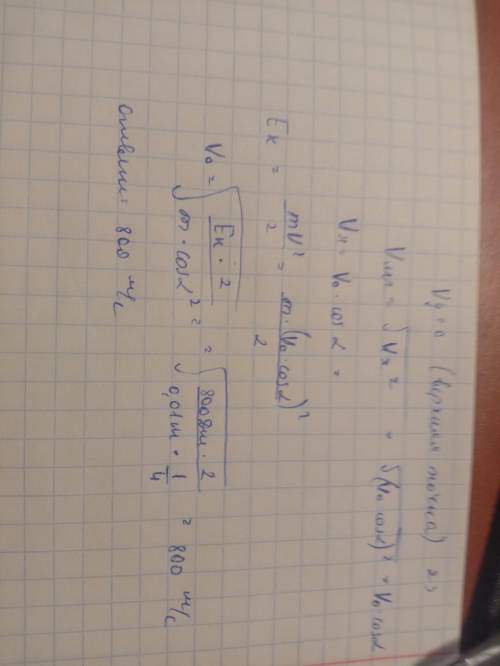 Vy = 0 (верхняя точка) =>
Vмгн = √Vx² = √(V₀ cosα)² = V₀ cosα
Vx = V₀ · cos α =
Eк = mV²/2 = m·(V₀·cosα)²/2
V₀ = √(Eк · 2/m · cosα²) = = √(800Дж · 2/0,01m · 1/4) = 800 м/с
Ответ: 800 м/с